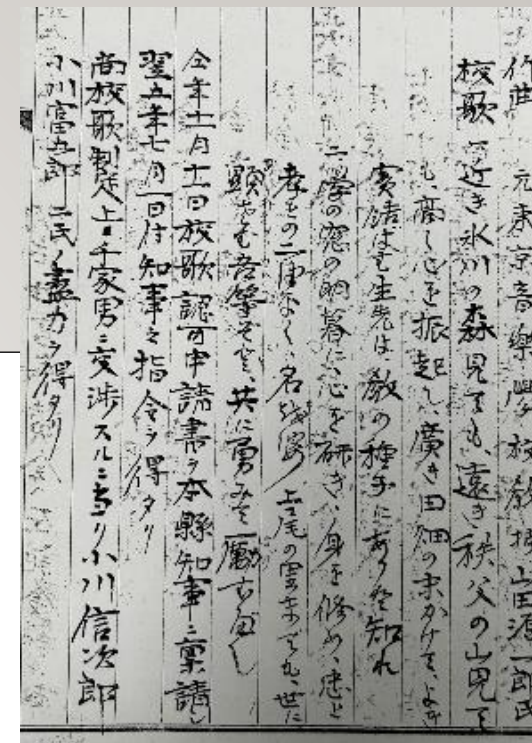 作曲 元東京音樂學校教授 山田源一郎氏
校歌 一、近き氷川の森見ても、遠き秩父の山見て
も、高く心を振起し、廣き田畑の末かけて、よき
實結ばむ生先は 教の種子にありと知れ
二、學の窓の明暮に、心を研き、身を修め、忠と
孝との二重なく、名
上尾の里
世に
顕さむ
共に勇みて勵むべし
今年十一月十一日校歌認可申請書ヲ本縣知事ニ稟請シ
翌五年七月一日付知事之指令ヲ得タリ
尚校歌制定上千家男ニ交渉スルニ當リ小川信次郎
小川富五郎 二氏ノ盡力ヲ得タリ